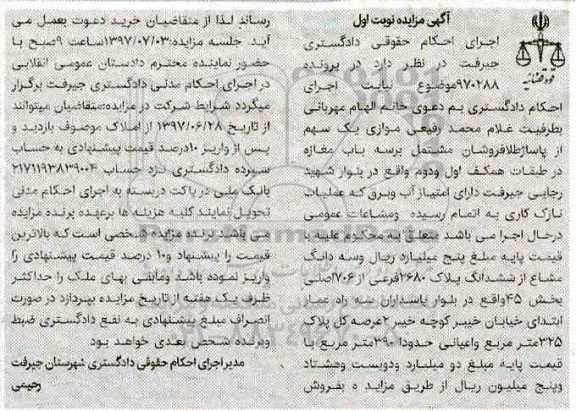 آگهی مزایده نوبت اول
اجرای احکام حقوقی دادگستری
جیرفت در نظر دارد در پرونده
۹۷۰۲۸۸موضوع نیابت اجرای
احکام دادگستری بم دعوی خانم الهام مهربانی
بطرفیت غلام محمد رفیعی موازی یک سهم
از پاساژطلافروشان مشتمل برسه باب مغازه
در طبقات همکف اول ودوم واقع در بلوار شهید
رجایی جیرفت دارای امتیاز آب وبرق که عملیات
نازک کاری به اتمام رسیده ومشاعات عمومی
درحال اجرا می باشد متعلق به محکوم علیه با
قیمت پایه مبلغ پنج میلیارد ریال وسه دانگ
مشاع از ششدانگ پلاک ۲۶۸۰فرعی از۷۰۶اصلی
بخش ۴۵واقع در بلوار پاسداران سه راه عمار
ابتدای خیابان خیبر کوچه خیبر۲عرصه کل پلاک
۳۲۵متر مربع واعیانی حدودا ۳۹۰متر مربع با
قیمت پایه مبلغ دو میلیارد ودویست وهشتاد
وپنج میلیون ریال از طریق مزایده بفروش
رساند لذا از متقاضیان خرید دعوت بعمل می
آید. جلسه مزایده:۱۳۹۷/۰۷/۰۳ساعت ۹صبح با
حضور نماینده محترم دادستان عمومی انقلابی
در اجرای احکام مدنی دادگستری جیرفت برگزار
میگردد شرایط شرکت در مزایده:متقاضیان میتوانند
از تاریخ ۱۳۹۷/۰۶/۲۸ از املاک موصوف بازدید و
پس از واریز ۱۰درصد قیمت پیشنهادی به حساب
سپرده دادگستری نزد حساب ۲۱۷۱۱۹۳۸۳۹۰۰۴
بانک ملی در پاکت دربسته به اجرای احکام مدنی
تحویل نمایند کلیه هزینه ها برعهده برنده مزایده
می باشد برنده مزایده شخصی است که بالاترین
قیمت را پیشنهاد و۱۰ درصد قیمت پیشنهادی را
واریز نموده باشد ومابقی بهای ملک را حداکثر
ظرف یک هفته از تاریخ مزایده بپردازد در صورت
انصراف مبلغ پیشنهادی به نفع دادگستری ضبط
وبرنده شخص بعدی خواهد بود
مدیر اجرای احکام حقوقی دادگستری شهرستان جیرفت
رحیمی